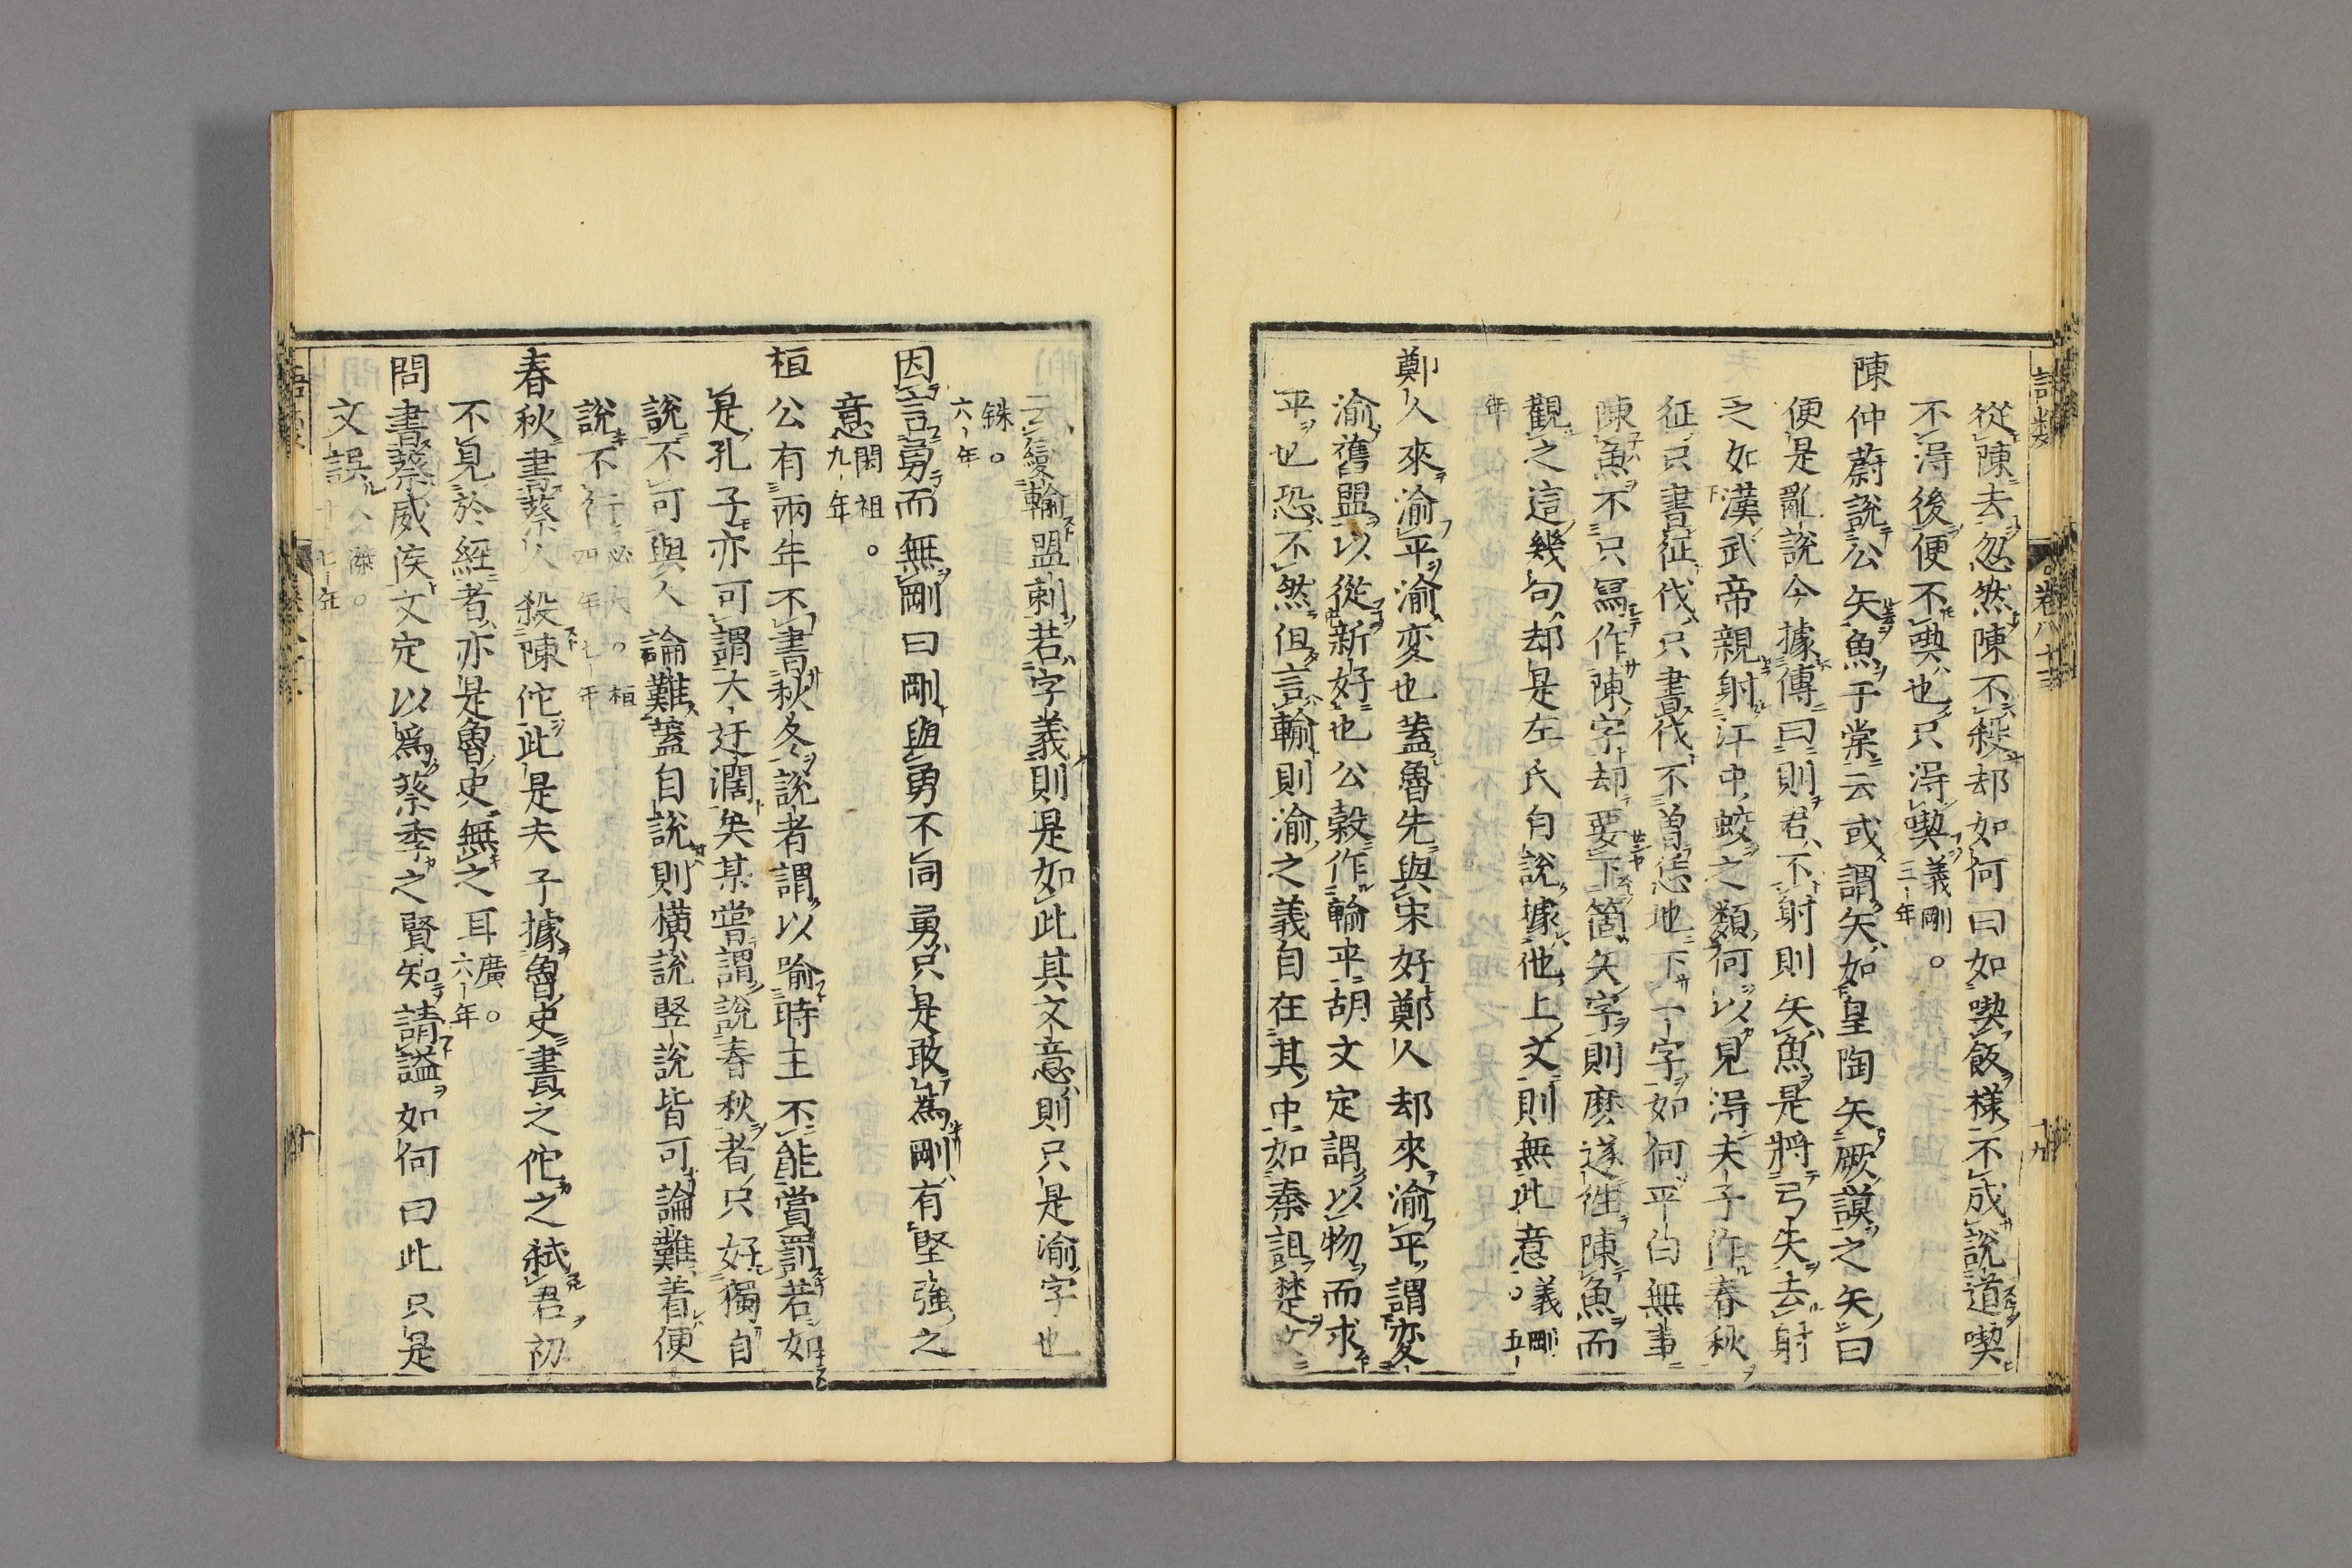 從陳去忽然陳不殺却如何曰如喫飯樣不成說道喫
不得後便不喫也只得喫義剛○三年
陳仲蔚說公矢魚于棠云或謂矢如皐陶矢厥謨之矢曰
便是亂說今據傳曰則君不射則矢魚是將弓矢去射
之如漢武帝親射江中蛟之類何以見得夫子作春秋
征只書征伐只書伐不曽恁地下一字如何平白無事
陳魚不只冩作陳字却要下箇矢字則麽遂徃陳魚而
觀之這幾句却是左氏自說據他上文則無此意○義剛五
年
鄭人來渝平渝変也蓋魯先與宋好鄭人却來渝平謂変
渝舊盟以從新好也公穀作輸平胡文定謂以物而求
平也恐不然但言輸則渝之義自在其中如秦詛楚文
云變輸盟刺若字義則是如此其文意則只是渝字也
銖○六年
因言勇而無剛曰剛與勇不同勇只是敢為剛有堅強之
意閎祖○九年
桓公有兩年不書秋冬說者謂以喻時主不能賞罰若如
是孔子亦可謂大迂濶矣某嘗謂說春秋者只好獨自
說不可與人論難蓋自說則橫說竪說皆可論難着便
說不行必大○桓四年七年
春秋書蔡人殺陳佗此是夫子據魯史書之佗之弒君初
不見於經者亦是魯史無之耳廣○六年
問書蔡威侯文定以為蔡季之賢知請謚如何曰此只是
文誤人傑○十七年
語類
卷八十三
十九